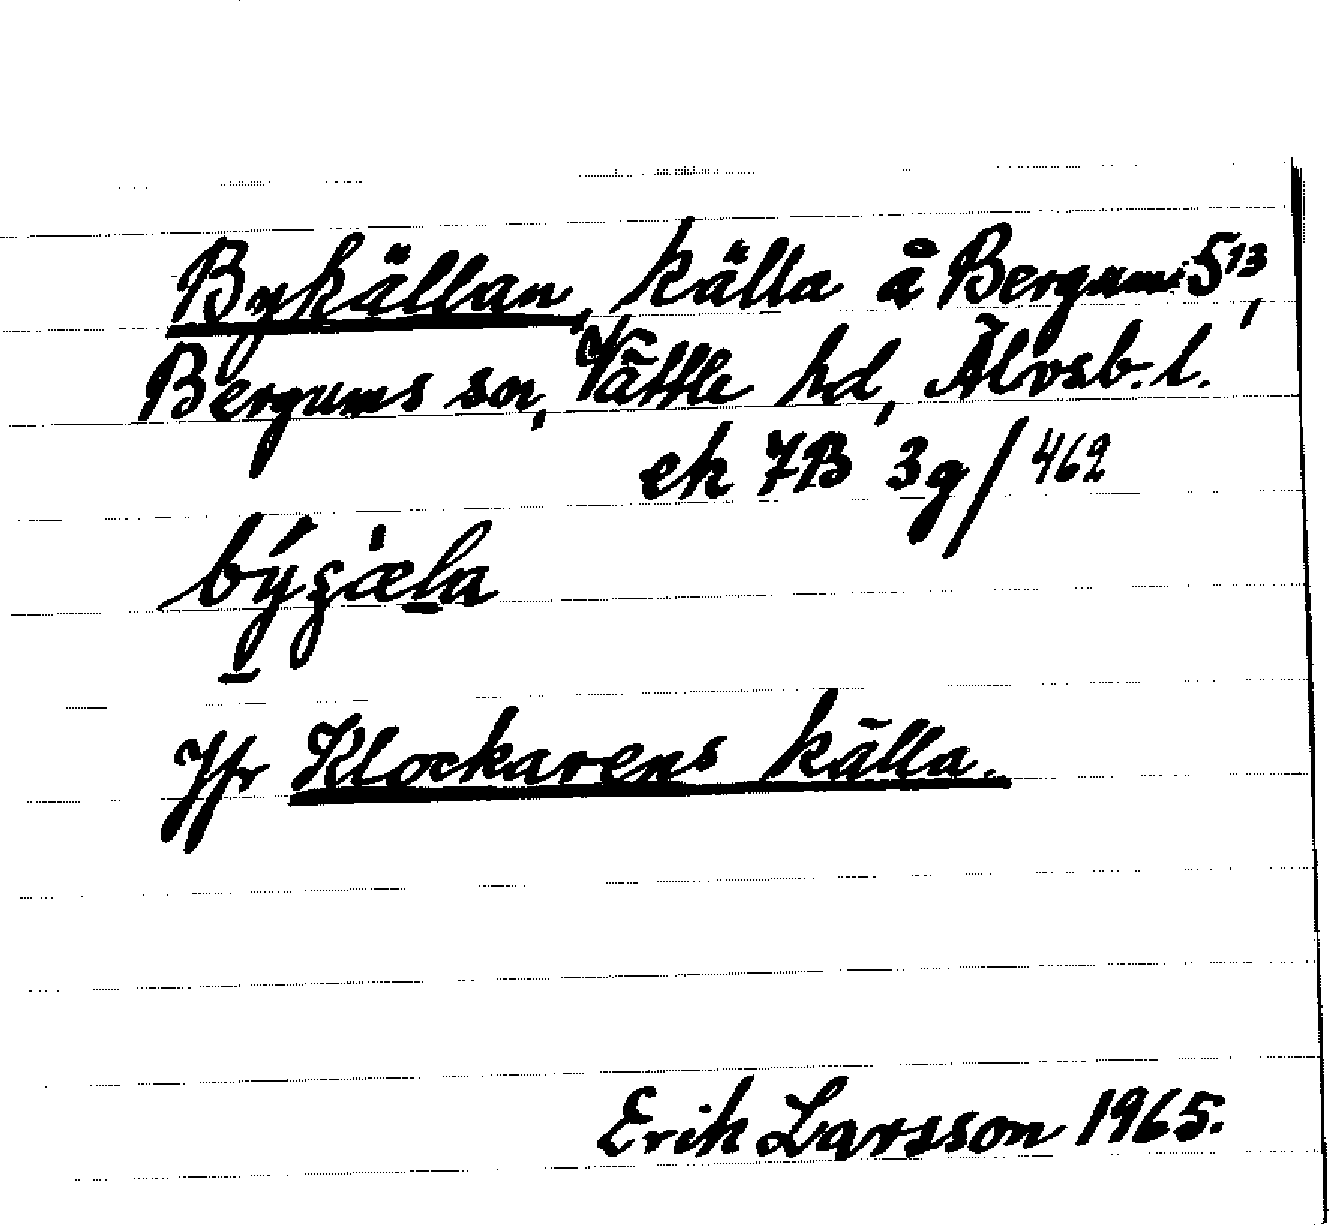 Bykällan, källa å Bergum 5¹³,
Bergums sn, Vättle hd, Älvsb. l.
ek 7B 3g/462
býgæ̀la
Jfr Klockarens källa.
Erik Larsson 1965.